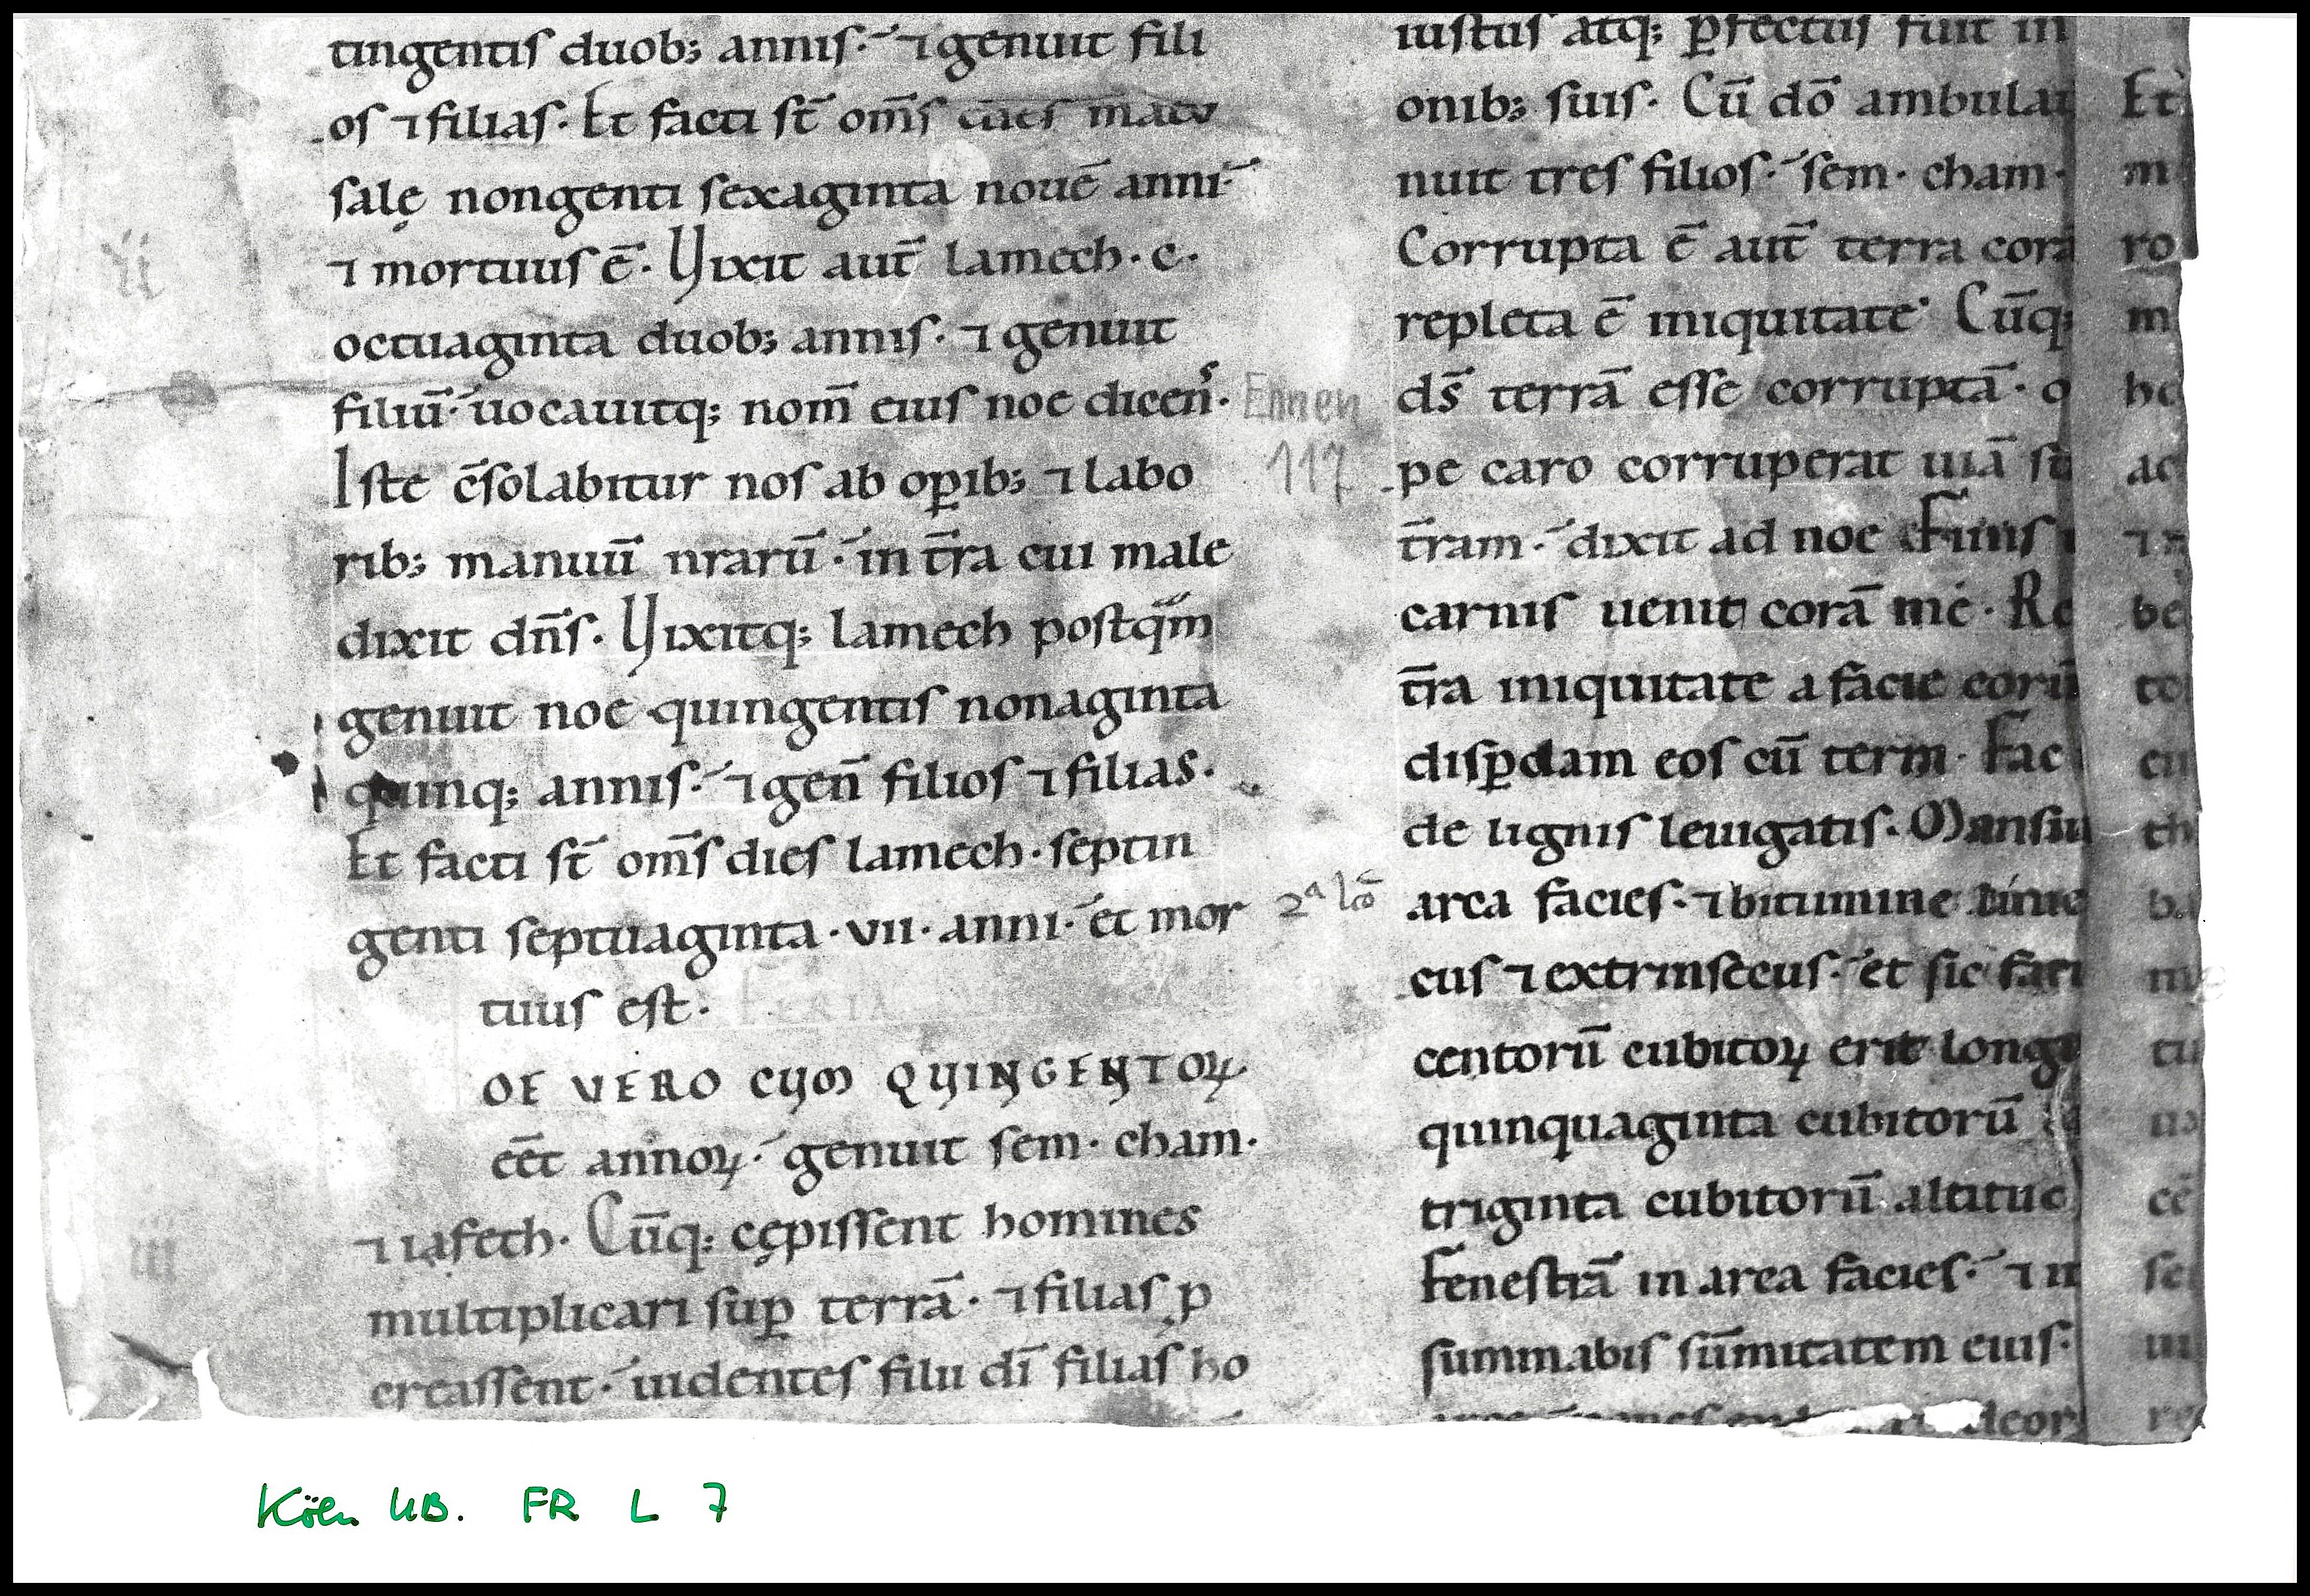 tingentis duob; annis. ⁊ genuit fili
os ⁊ filias. Et facti st̄ om̄s dies matu
salę nongenti sexaginta nouē anni
⁊ mortuus ē. Vixit aut̄ lamech. c.
ii
octuaginta duob; annis. ⁊ genuit
filiū. uocauitq; nom̄ eius noe dicens.
Iste c̄solabitur nos ab oꝑib; ⁊ labo
rib; manuū nrarū. in t̄ra cui male
dixit dn̄s. Vixitq; lamech postqm
genuit noe quingentis nonaginta
quinq; annis. ⁊ gen̄ filios ⁊ filias.
Et facti st̄ om̄s dies lamech. septin
genti septuaginta. vii. anni. et mor
tuus est. FERIA
OE VERO CUM QUINGENTOꝜ
eēt annoꝝ. genuit sem. cham.
⁊ iafeth. Cūq; cępissent homines
iii
multiplicari suꝑ terrā. ⁊ filias ꝓ
creassent. uidentes filii dī filias ho
Ennen
117
2ª lō
iustus atq; ꝑfectus fuit in
onib; suis. Cū dō ambulau
nuit tres filios. sem. cham.
Corrupta ē aut̄ terra corā
repleta ē iniquitate. Cūq;
ds̄ terrā esse corruptā. o
pe caro corruperat uiā su
t̄ram. dixit ad noe Finis
carnis uenit corā me. Re
t̄ra iniquitate a facie eorū
disꝑdam eos cū terra. Fac
de lignis leuigatis. Mansiu
arca facies. ⁊ bitumine linie
cus ⁊ extrinsecus. et sic faci
centorū cubitoꝝ erit longi
quinquaginta cubitorū
triginta cubitorū altitud
Fenestrā in arca facies. ⁊ in
summabis sūmitatem eius.
deor
Et
m
ro
m
be
ac
⁊
be
to
cu
th
ba
m
tu
no
cē
se
re
Köln UB. FR L 7